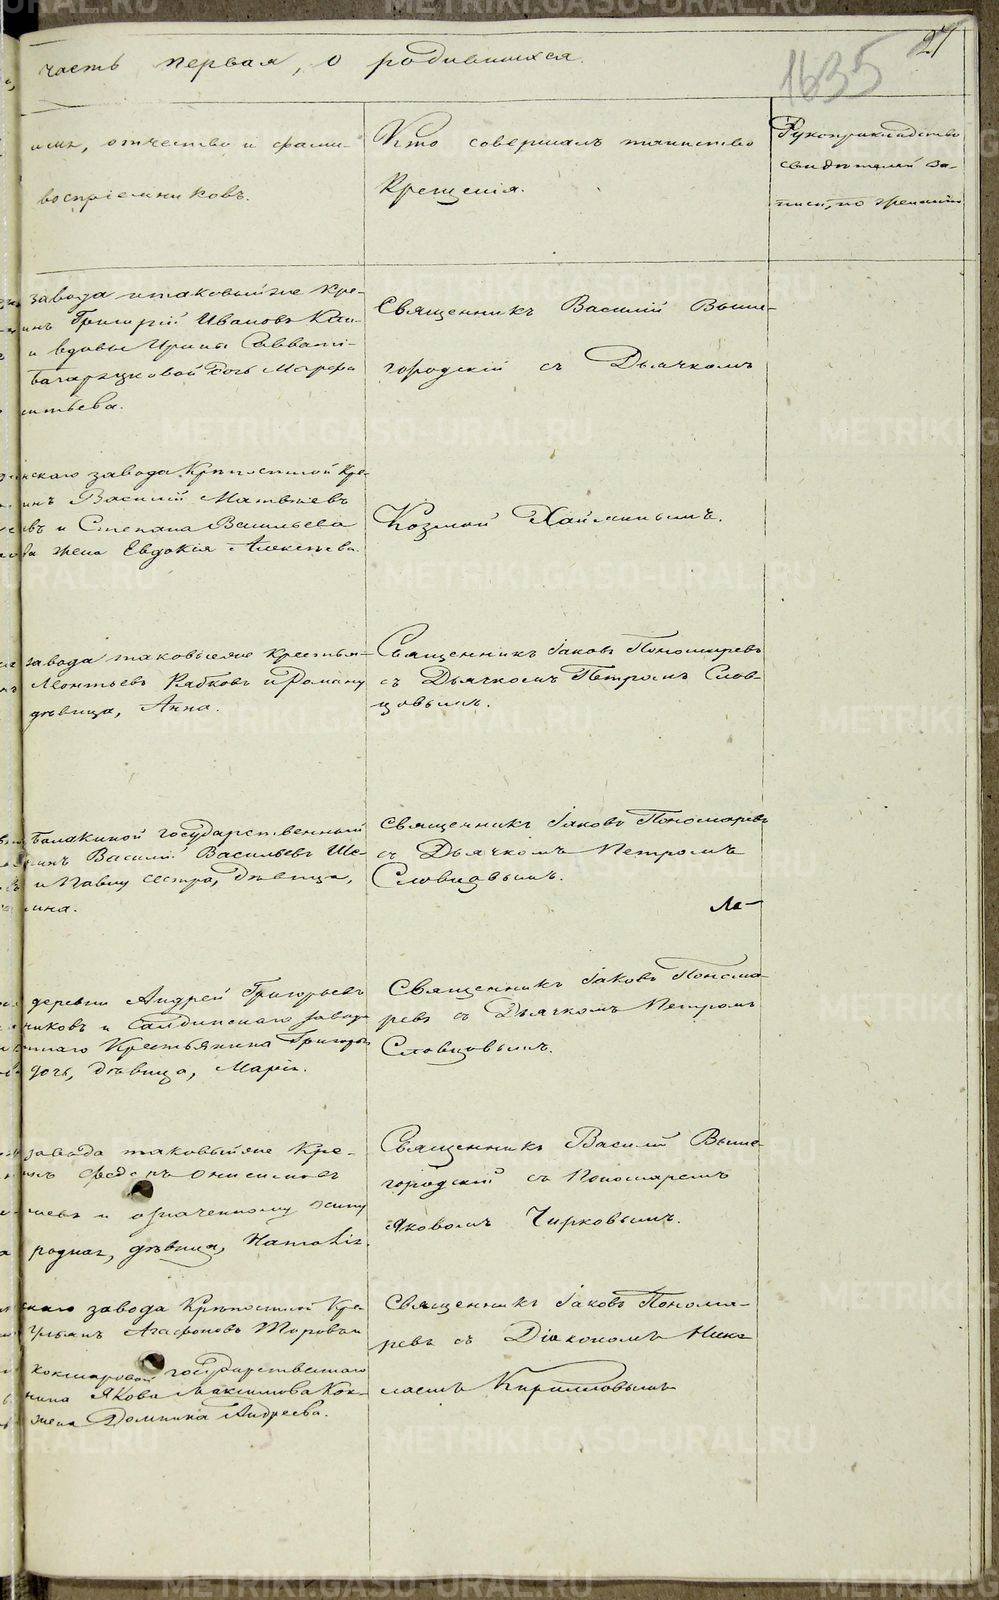 27
1635
часть первая, о родившихся.
имя, отчество и фами-
воспріемниковъ.
Кто совершалъ таинство
Крещенія.
Рукоприкладство
свидѣтелей за-
писи, по желанію
завода таковый же кре-
инъ Григорій Ивановъ
и вдовы Ирины Савваті-
дочь Марфа
Священникъ Василій Выше-
городскій съ Дьячкомъ
Козмой Хаймиными.
скаго завода Крѣпостной Кре-
инъ Василій Матвѣевъ
въ и Степана Васильева
жена Евдокія Алексѣева.
завода таковый же крестья-
Леонтьевъ Рябковъ и Роману
дѣвица, Анна.
Священникъ Іаковъ Пономаревъ
съ Дьячкомъ Петромъ Слов-
цовымъ.
Балакиной государственный
инъ Василій Васильевъ Ше-
и Павлу сестра, дѣвица,
ина.
Священникъ Іаковъ Пономаревъ
съ Дьячкомъ Петромъ
Словцовымъ.
деревни Андрей Григорьевъ
никовъ и Салдинскаго завода
ннаго Крестьянина Григорья
дочь, дѣвица, Марія.
Священникъ Іаковъ Понома-
ревъ съ Дьячкомъ Петромъ
Словцовымъ.
завода таковый же Кре-
инъ Онисимовъ
и означенному
родная, дѣвица, Наталія.
Священникъ Василій Выше-
городскій съ Пономаремъ
Яковомъ Чирковымъ.
скаго завода Крѣпостной Кре-
Ульянъ Агафоновъ
Кокшаровой государственнаго
нина Якова Максимова Кок-
жена Домника Андреева.
Священникъ Іаковъ Понома-
ревъ съ Діакономъ Нико-
лаемъ Кирилловымъ
METRIKI.GASO-URAL.RU